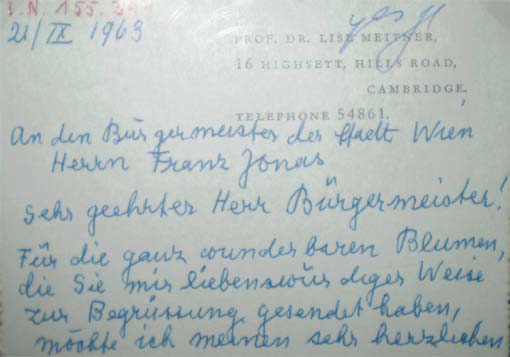 I.N. 155.34
21/IX 1963
PROF. DR. LISE MEITNER,
16 HIGHSETT, HILLS ROAD,
CAMBRIDGE.
TELEPHONE 54861.
An den Bürgermeister der Stadt Wien
Herrn Franz Jonas
Sehr geehrter Herr Bürgermeister!
Für die ganz wunderbaren Blumen,
die Sie mir liebenswürdiger Weise
zur Begrüssung gesendet haben,
möchte ich meinen sehr herzlichen